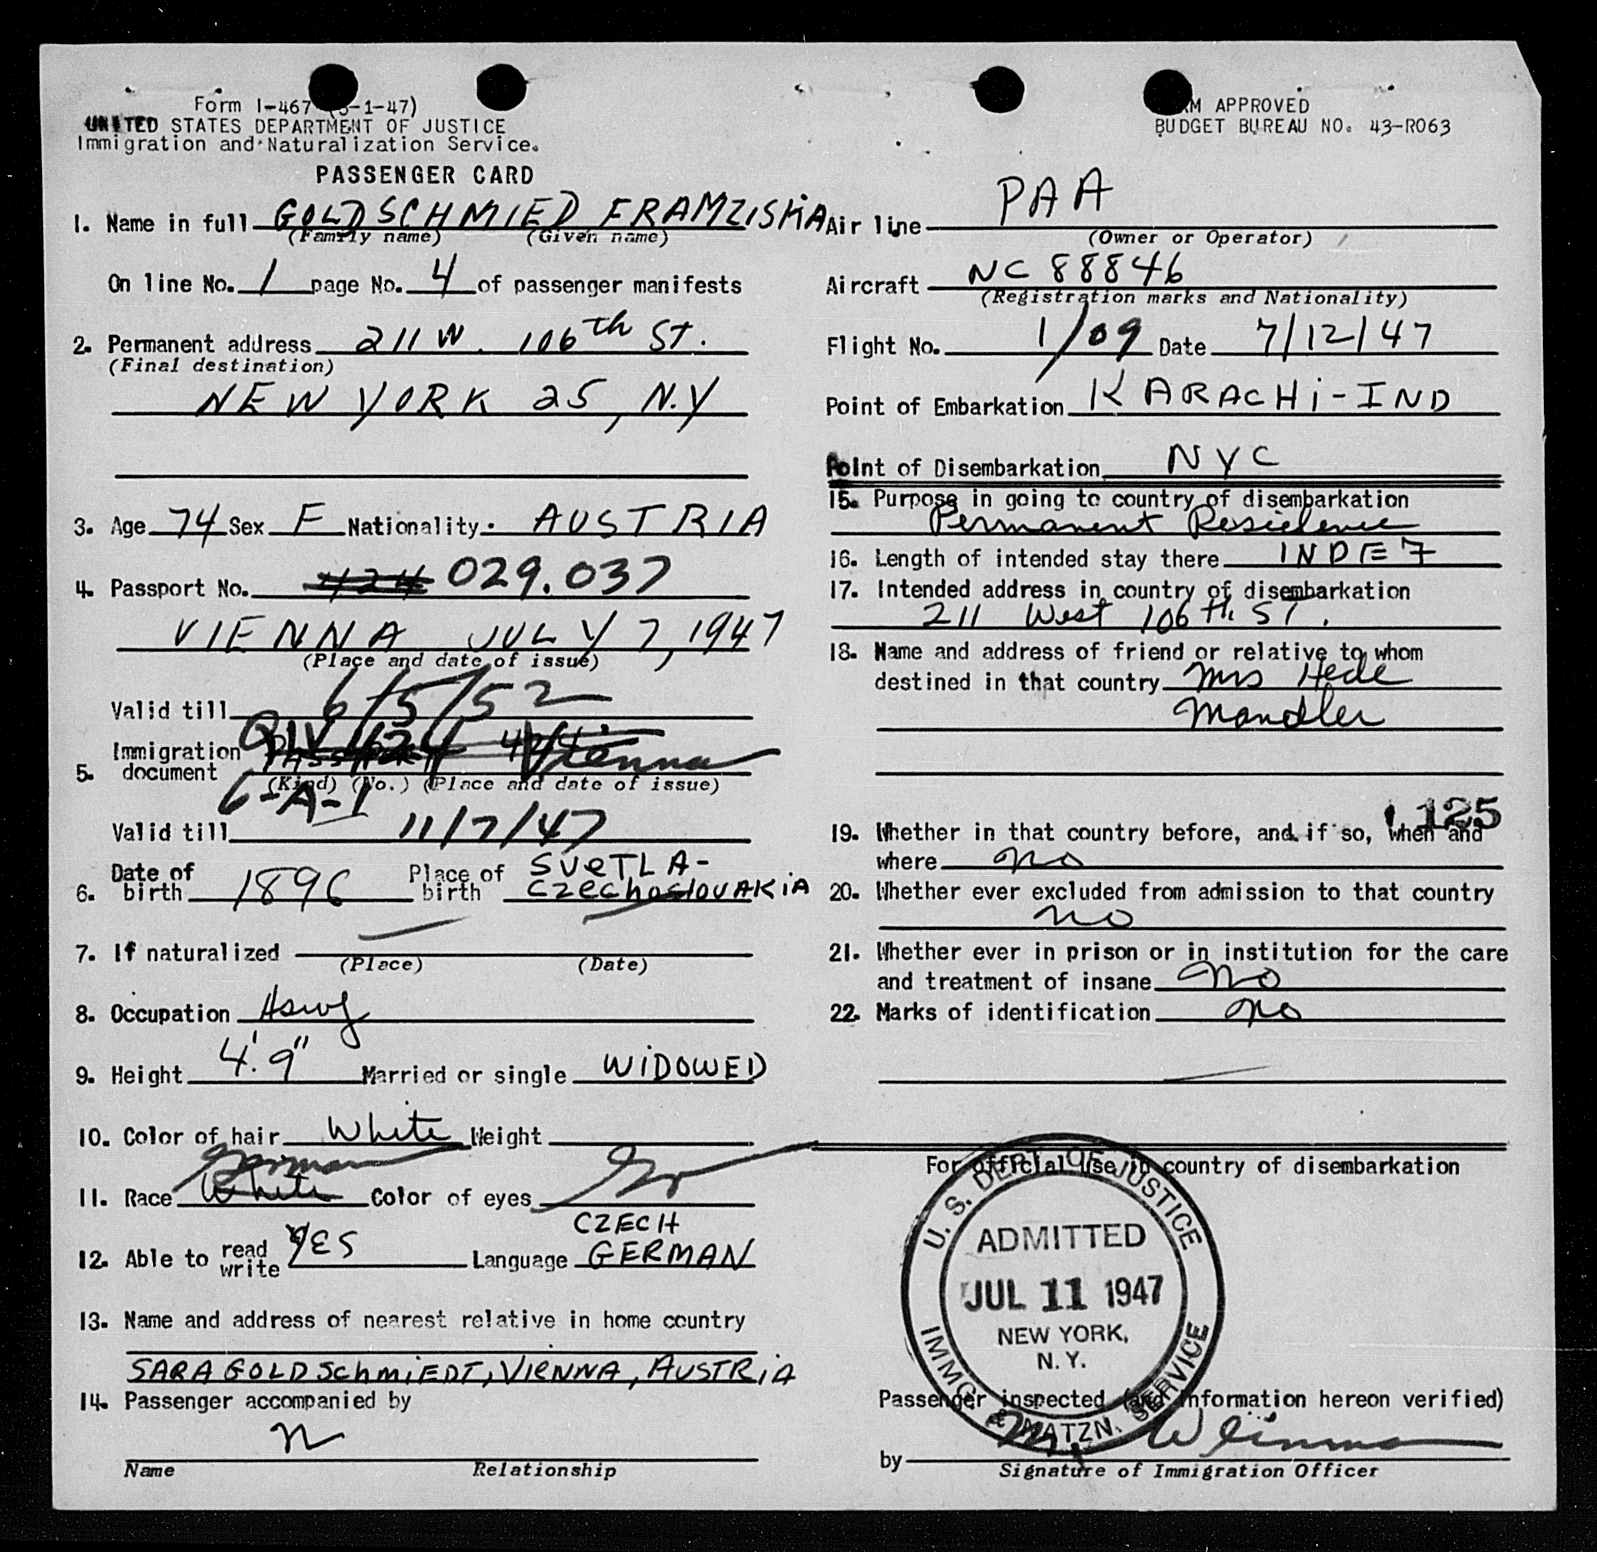 Form I-467 (3-1-47)
UNITED STATES DEPARTMENT OF JUSTICE
Immigration and Naturalization Service.
PASSENGER CARD
1. Name in full GOLDSCHMIED FRAMZISKA
(Family name) (Given name)
On line No. 1 page No. 4 of passenger manifests
2. Permanent address 211 W. 106th ST.
(Final destination)
NEW YORK 25, N.Y
3. Age 74 Sex F Nationality. AUSTRIA
4. Passport No. 424 029.037
VIENNA JULY 7, 1947
(Place and date of issue)
Valid till 6/5/52
5. Immigration document QIV 1624 Vienna
(Kind) (No.) (Place and date of issue)
6-A-1
Valid till 11/7/47
6. Date of birth 1896 Place of birth SVETLA-
CZECHOSLOVAKIA
7. If naturalized
(Place) (Date)
8. Occupation Hswf
9. Height 4'.9" Married or single WIDOWED
10. Color of hair White Weight
German
11. Race White Color of eyes Gr
CZECH
12. Able to read write YES Language GERMAN
13. Name and address of nearest relative in home country
SARA GOLDSCHMIEDT, VIENNA, AUSTRIA
14. Passenger accompanied by
N
Name Relationship
FORM APPROVED
BUDGET BUREAU NO. 43-R063
Air line PAA
(Owner or Operator)
Aircraft NC 88846
(Registration marks and Nationality)
Flight No. 1/09 Date 7/12/47
Point of Embarkation KARACHI-IND
Point of Disembarkation NYC
15. Purpose in going to country of disembarkation
Permanent Residence
16. Length of intended stay there INDEF
17. Intended address in country of disembarkation
211 West 106th ST.
18. Name and address of friend or relative to whom
destined in that country Mrs Hede
Mandler
125
19. Whether in that country before, and if so, when and
where no
20. Whether ever excluded from admission to that country
no
21. Whether ever in prison or in institution for the care
and treatment of insane no
22. Marks of identification no
For official use in country of disembarkation
U. S. DEPT. OF JUSTICE
ADMITTED
JUL 11 1947
NEW YORK,
N. Y.
IMMG. & NATZN. SERVICE
Passenger inspected (and information hereon verified)
by
Signature of Immigration Officer